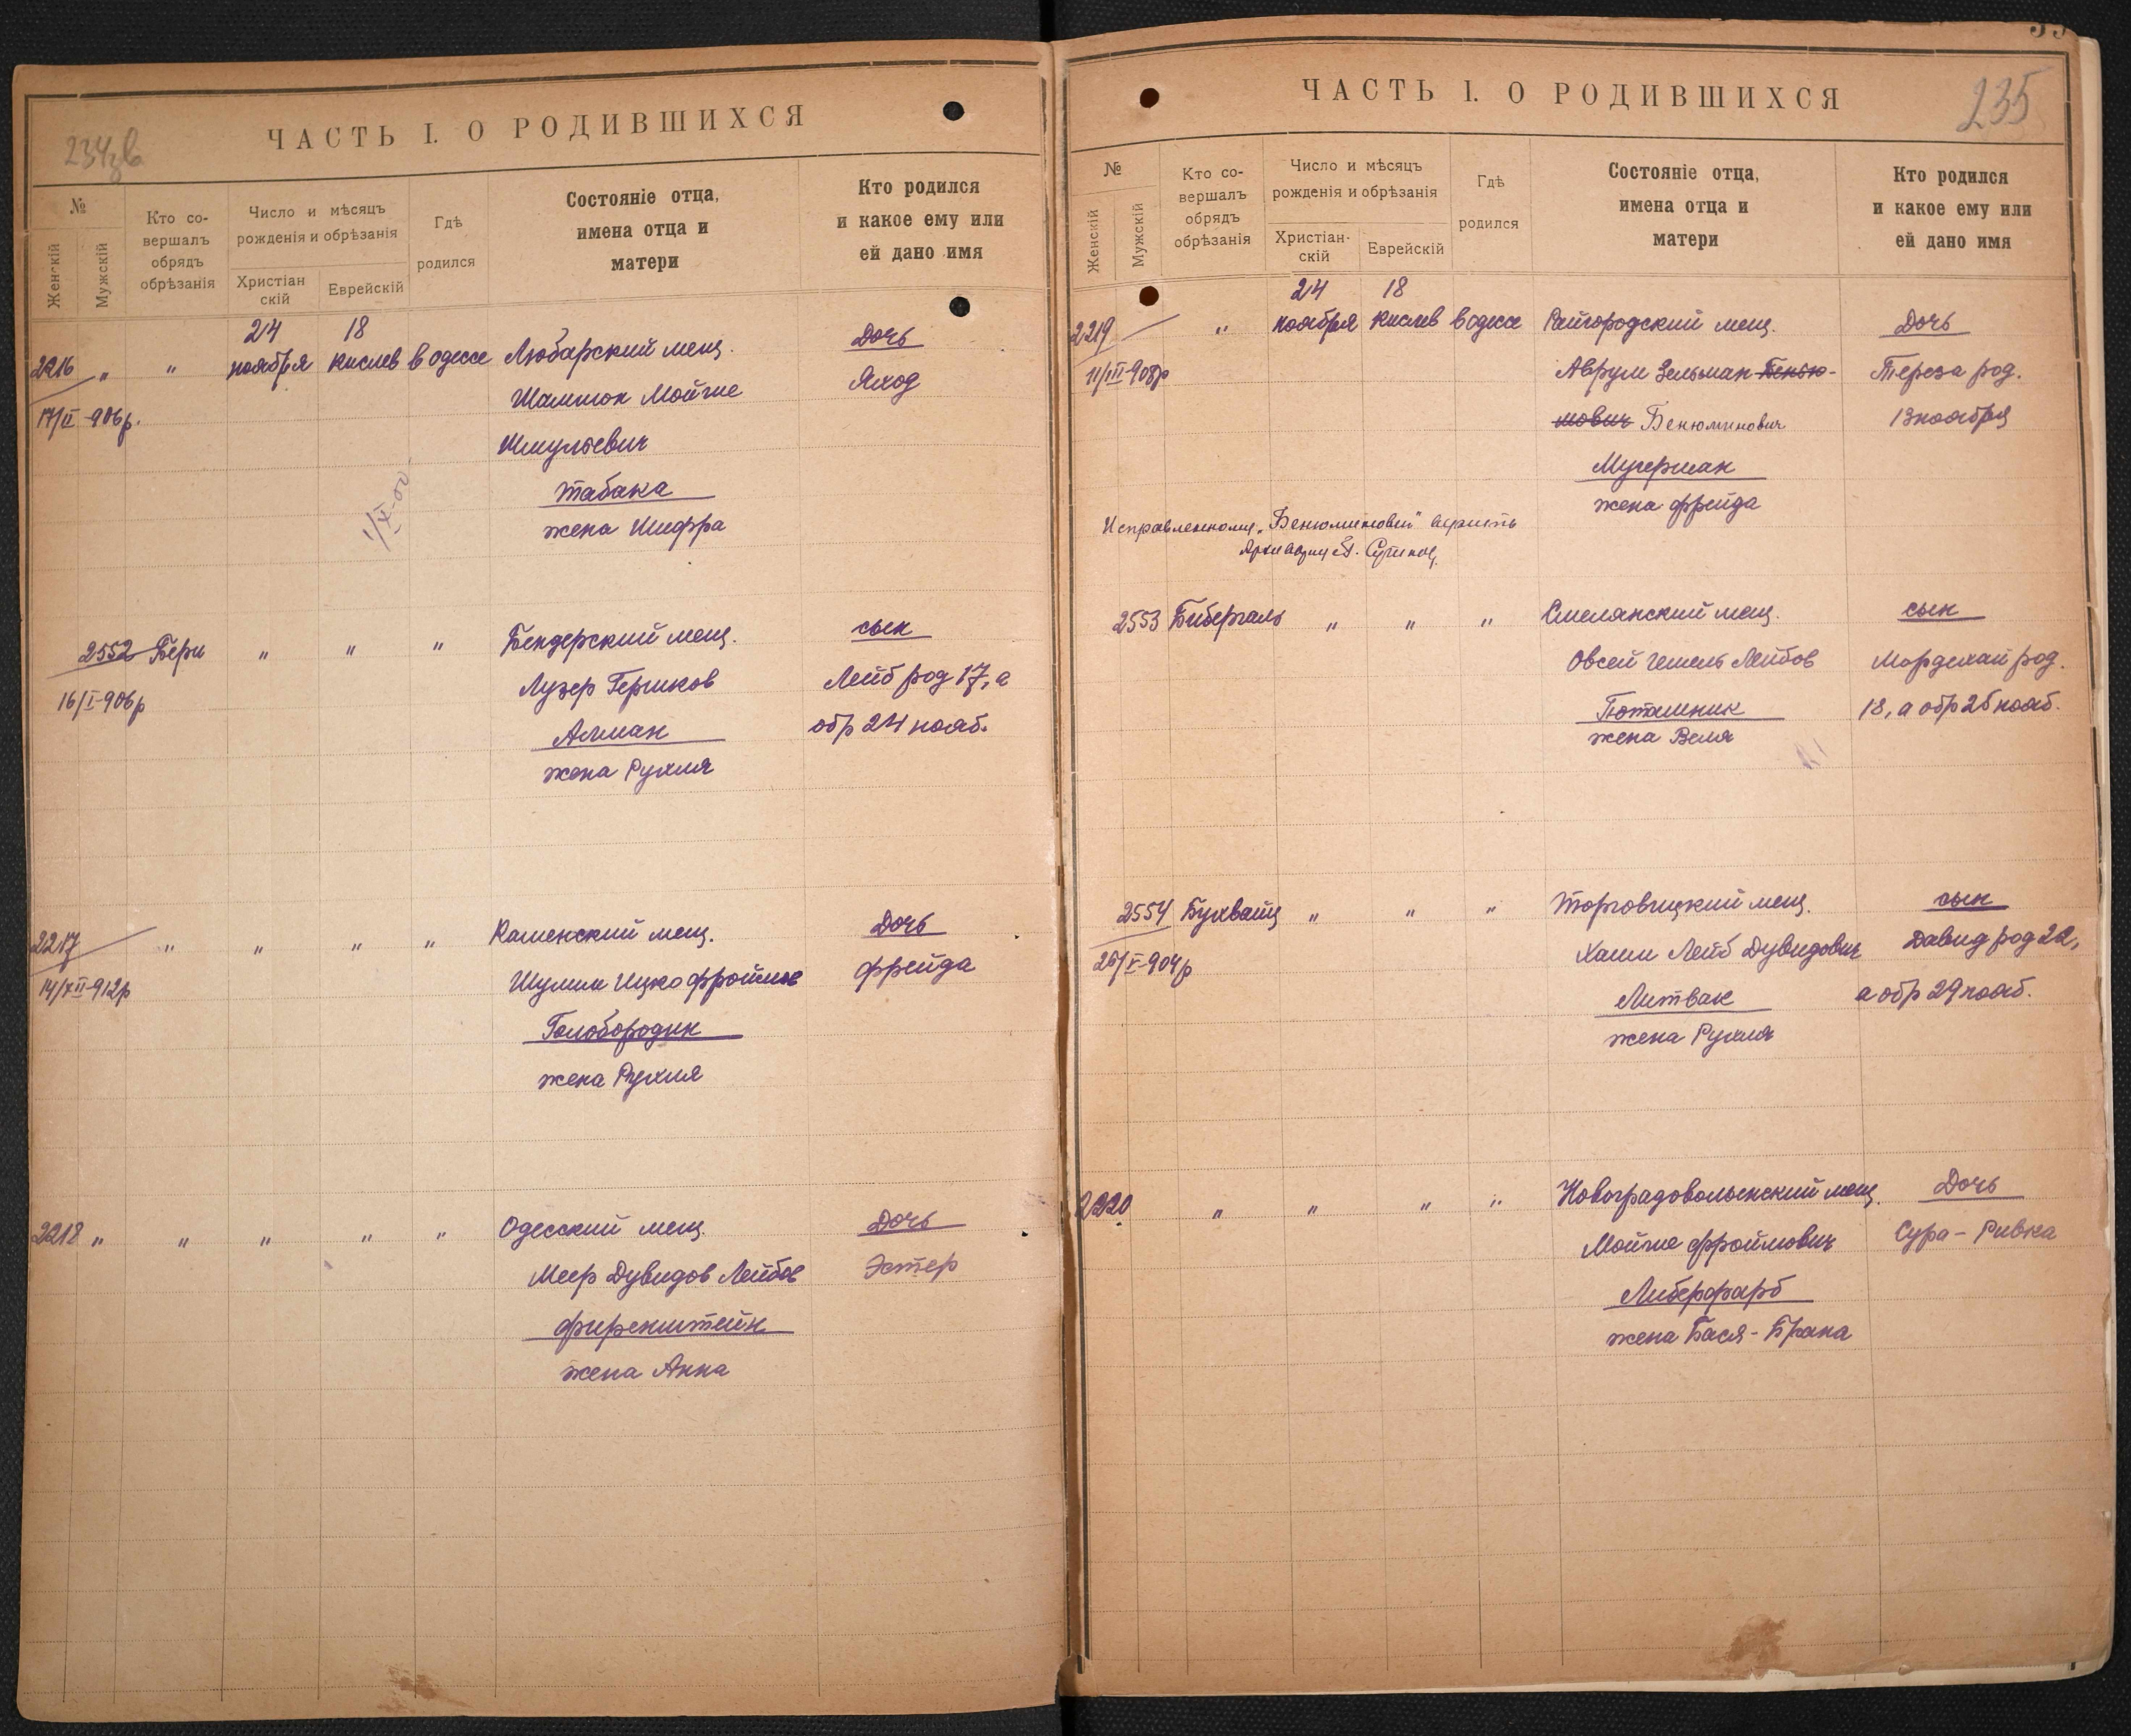 234зв
ЧАСТЬ I. О РОДИВШИХСЯ
№
Женскій
Мужскій
Кто со-
вершалъ
обрядъ
обрѣзанія
Число и мѣсяцъ
рожденія и обрѣзанія
Христіан
скій
Еврейскій
Гдѣ
родился
Состояніе отца,
имена отца и
матери
Кто родился
и какое ему или
ей дано имя
24 18
2216 " " ноября кислев в одессе Любарский мещ. Дочь
17/II-906р. Шамшон Мойше Яход
Шмулевич
Табака
жена Шифра
2552 Бери " " " Бендерский мещ. сын
16/I-906р Лузер Гершков Лейб род 17, а
Алман обр 24 нояб.
жена Рухля
2217 " " " " Каменский мещ. Дочь
14/XII-912р Шулим Ицко Фроймов Фрейда
Голобородик
жена Рухля
2218 " " " " " Одесский мещ. Дочь
Меер Дувидов Лейбов Эстер
Фиренштейн
жена Анна
235
ЧАСТЬ I. О РОДИВШИХСЯ
№
Женскій
Мужскій
Кто со-
вершалъ
обрядъ
обрѣзанія
Число и мѣсяцъ
рожденія и обрѣзанія
Христіан-
скій
Еврейскій
Гдѣ
родился
Состояніе отца,
имена отца и
матери
Кто родился
и какое ему или
ей дано имя
24 18
2219 " ноября кислев в одессе Райгородский мещ. Дочь
11/III-908р Аврум Зельман Беню- Тереза род.
мович Бенюминович 13 ноября
Мучерман
жена Фрейда
Исправленному "Бенюминович" верить
2553 Бибергаль " " " Смелянский мещ. сын
Овсей Гешель Лейбов Мордехай род.
Поташник 18, а обр 25 нояб.
жена Веля
2554 Бухвайц " " " Торговицкий мещ. сын
26/V-904р Хаим Лейб Дувидович Давид род 22,
Литвак а обр 29 нояб.
жена Рухля
2220 " " " " Новоградоволынский мещ. Дочь
Мойше Фроймович Сура-Ривка
Либерфарб
жена Бася-Брана